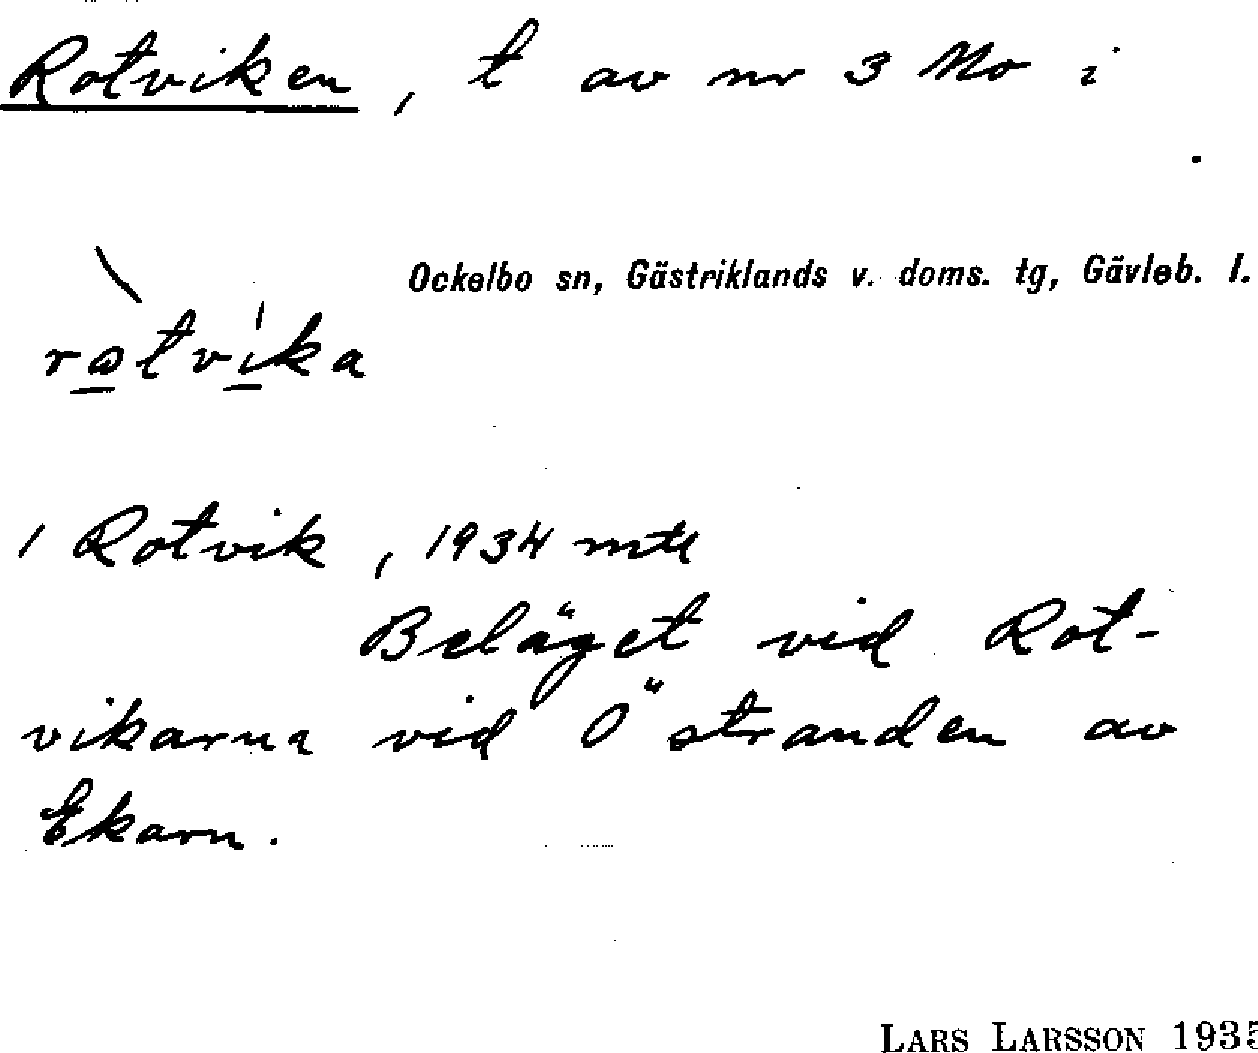 Rotviken, t av nr 3 Mo i
Ockelbo sn, Gästriklands v. doms. tg, Gävleb. l.
ròtvíka
1 Rotvik, 1934 mtl
Beläget vid Rot-
vikarna vid Östranden av
Ekarn.
LARS LARSSON 1935